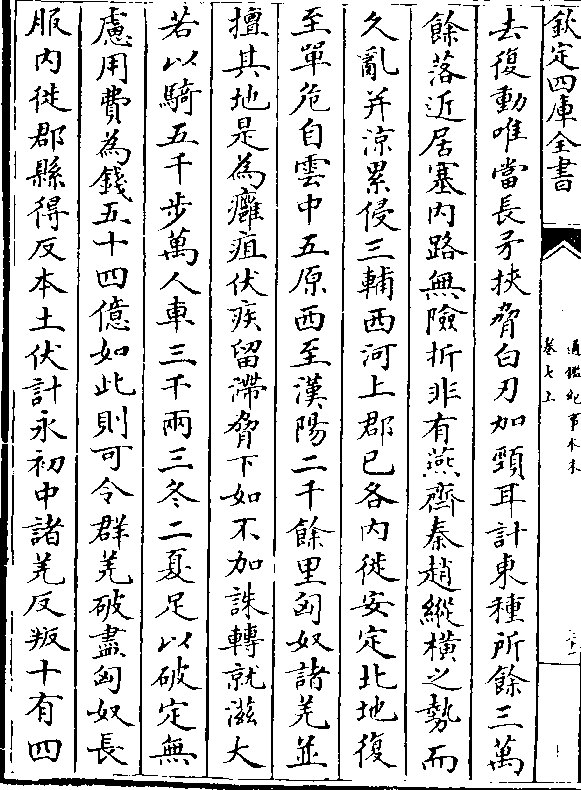 欽定四庫全書
通鑑紀事本末
卷七上
去復動唯當長矛挾脅白刃加頸耳計東種所餘三萬
餘落近居塞內路無險折非有燕齊秦趙縱橫之勢而
久亂并涼累侵三輔西河上郡已各內徙安定北地復
至單危自雲中五原西至漢陽二千餘里匈奴諸羌並
擅其地是為癰疽伏疾留滯脅下如不加誅轉就滋大
若以騎五千步萬人車三千兩三冬二夏足以破定無
慮用費為錢五十四億如此則可令群羌破盡匈奴長
服內徙郡縣得反本土伏計永初中諸羌反叛十有四